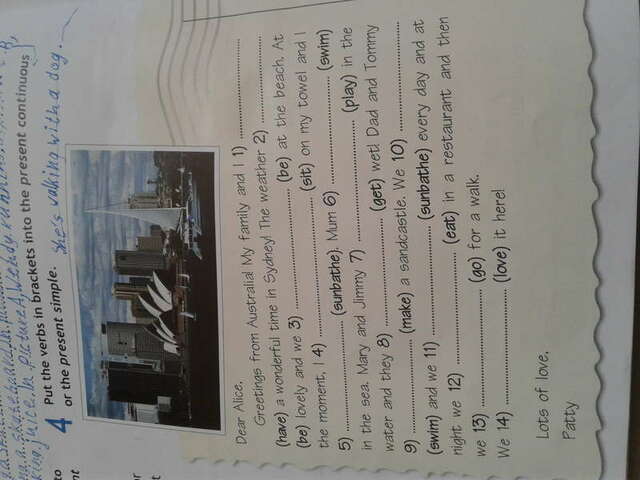 a skateboard in
king juice. In picture A, Wendy
B,
4 Put the verbs in brackets into the present continuous
or the present simple.
She's walking with a dog.
to
nt
r
t
Dear Alice,
Greetings from Australia! My family and I 1) ..............................
(have) a wonderful time in Sydney! The weather 2) ..........................
(be) lovely and we 3) .................................... (be) at the beach. At
the moment, I 4) .......................................... (sit) on my towel and I
5) ................................. (sunbathe). Mum 6) ........................................ (swim)
in the sea. Mary and Jimmy 7) .................................... (play) in the
water and they 8) ................................. (get) wet! Dad and Tommy
9) ............................ (make) a sandcastle. We 10) .................................
(swim) and we 11) ................................. (sunbathe) every day and at
night we 12) ................................... (eat) in a restaurant and then
we 13) ................................... (go) for a walk.
We 14) ................................... (love) it here!
Lots of love,
Patty